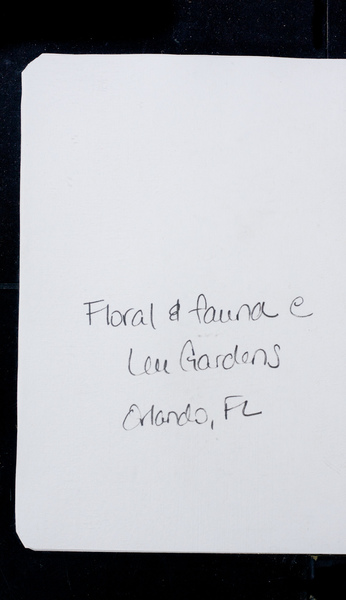 Floral & fauna @
Leu Gardens
Orlando, FL